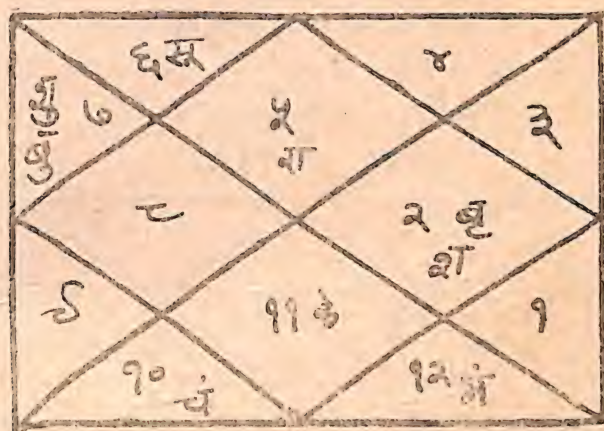 ६ सू
४
७
शु
बु
५
रा
३
८
२ बृ
श
९
११ के
१
१० चं
१२ मं